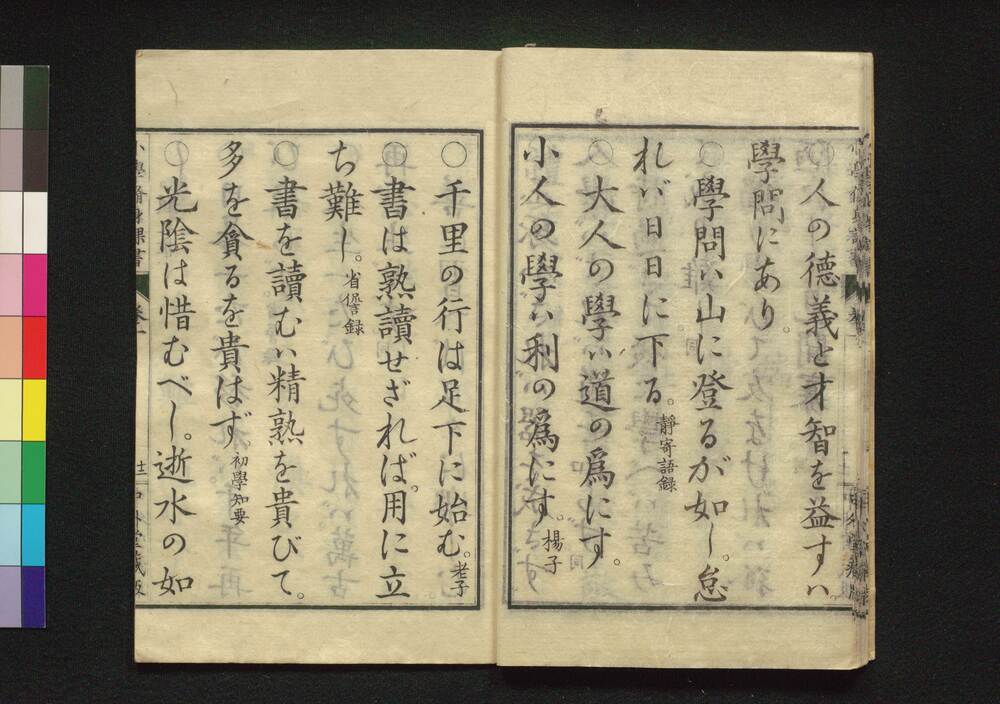 ○人の徳義と才智を益すハ。
學問にあり。
○學問ハ山に登るが如し。怠
れバ日日に下る。靜寄語録
○大人の學ハ道の爲にす。
小人の學ハ利の爲にす。楊子
○千里の行は足下に始む。老子
○書は熟讀せざれば。用に立
ち難し。省諐録
○書を讀むハ精熟を貴びて。
多を貪るを貴はず 初學知要
○光陰は惜むべし。逝水の如
小學脩身課書 巻一